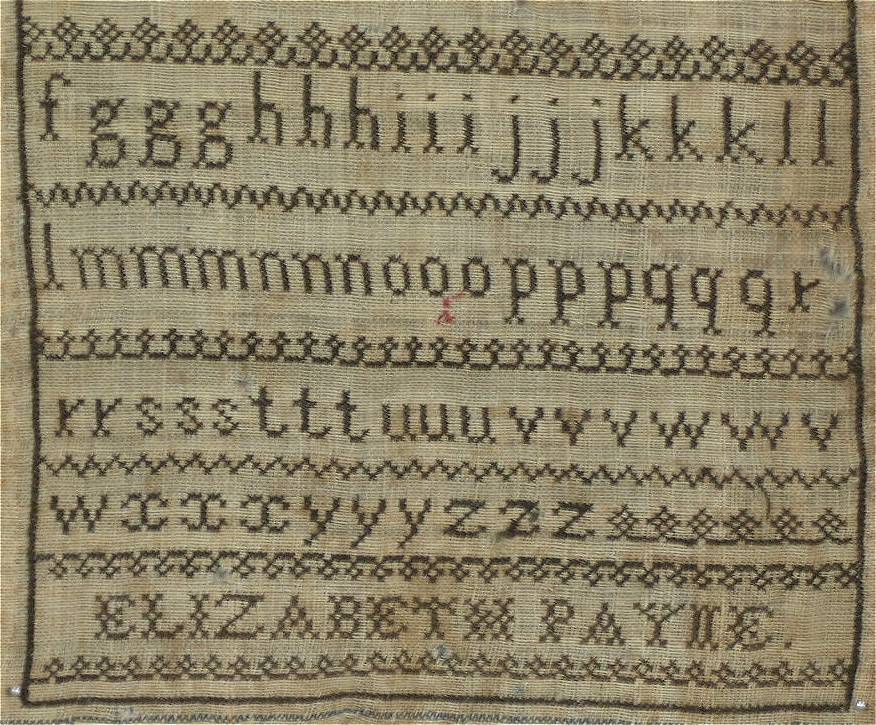 fggghhhiiijjjkkkll
lmmmnnnooopppqqqr
rrssstttuuuvvvwwv
wxxxyyyzzz
ELIZABETH PAYNE.